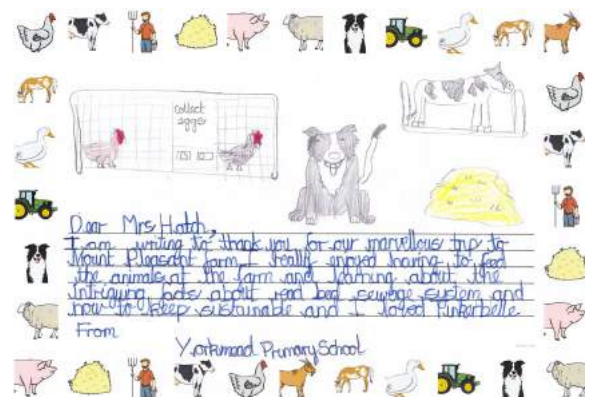 collect
eggs
Dear Mrs Hatch,
I am writing to thank you for our marvellous trip to
Mount Pleasant farm I really enjoyed having to feed
the animals at the farm and learning about the
intriguing facts about reed bed sewage system and
how to keep sustainable and I loved Tinkerbelle
From
Yorkmead Primary School